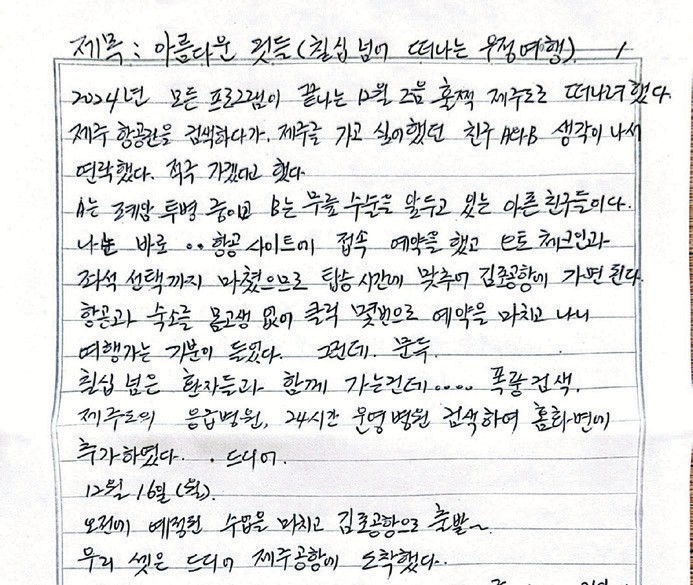 제목 : 아름다운 것들 (칠십 넘어 떠나는 우정여행) 1
2024년 모든 프로그램이 끝나는 12월 그믐 훌쩍 제주도로 떠나려 했다.
제주 항공란을 검색하다가, 제주를 가고 싶어했던 친구 A와B 생각이 나서
연락했다. 적극 가겠다고 했다.
A는 폐암 투병 중이고 B는 무릎 수술을 앞두고 있는 아픈 친구들이다.
나는 바로 .. 항공 사이트에 접속 예약을 했고 모두 체크인과
좌석 선택까지 마쳤으므로 탑승 시간에 맞추어 김포공항에 가면 된다.
항공과 숙소를 몸고생 없이 클릭 몇번으로 예약을 마치고 나니
여행가는 기분이 들었다. 그런데. 문득.
칠십 넘은 환자들과 함께 가는건데 .... 폭풍검색.
제주도의 응급병원, 24시간 운영 병원 검색하여 홈화면에
추가하였다. . 드디어.
12월 16일 (월).
오전에 예정된 수업을 마치고 김포공항으로 출발~
우리 셋은 드디어 제주공항에 도착했다..